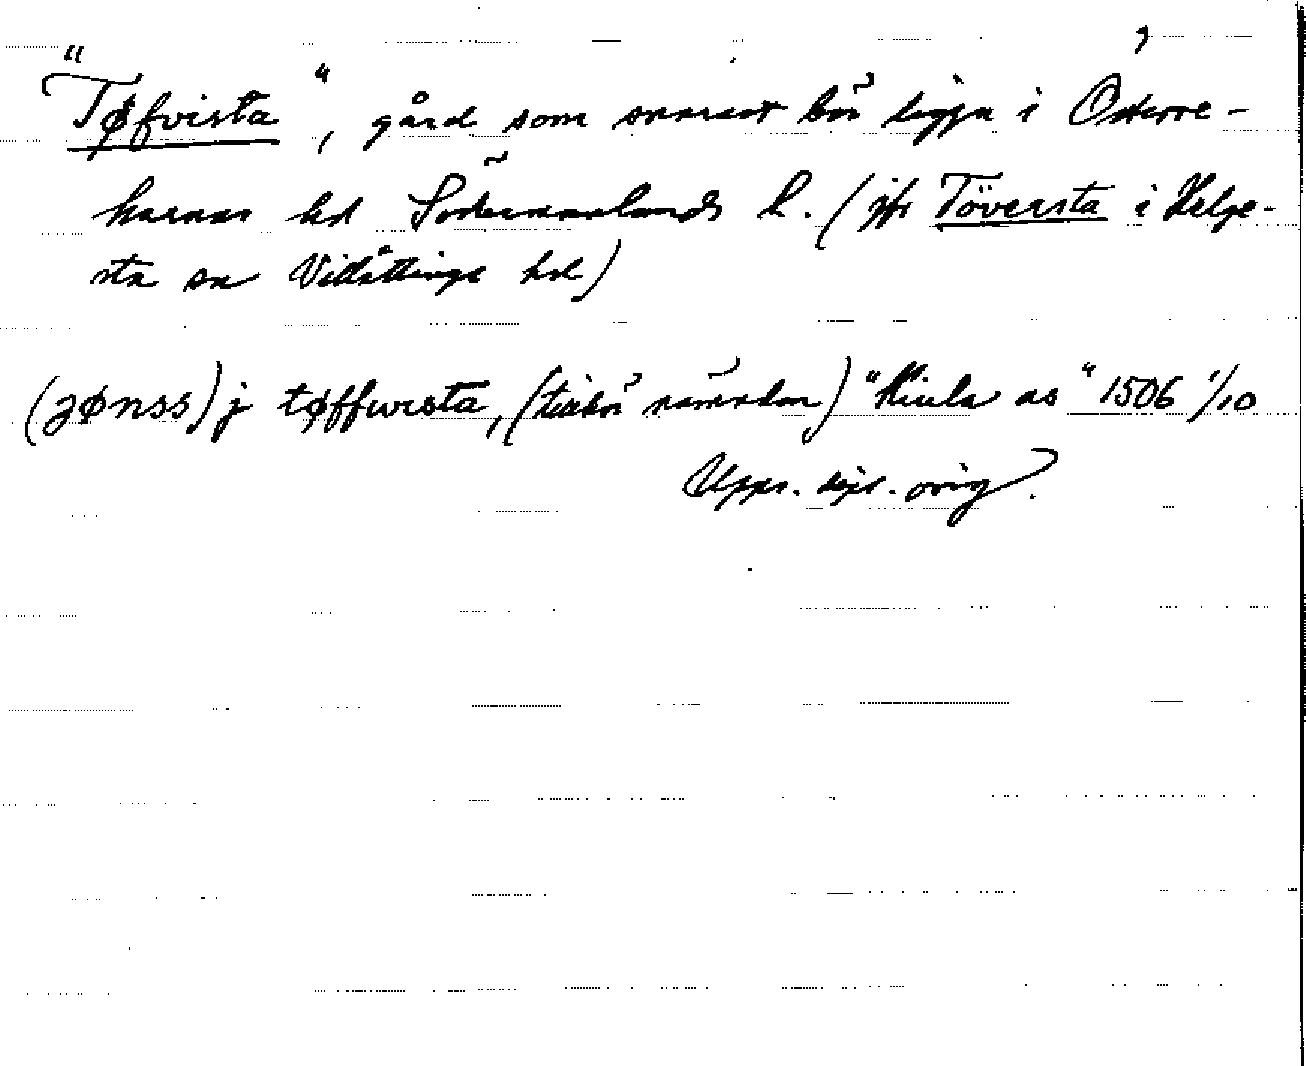 "Tøfvista", gård som snarast bör ligga i Österre-
karnes hd Södermanlands l. (jfr Töversta i Helge-
sta sn Villåttinge hd)
(jønss) j tøffwista, (tider nämnden) "Kiula as" 1506 1/10
Upps. dipl. orig.